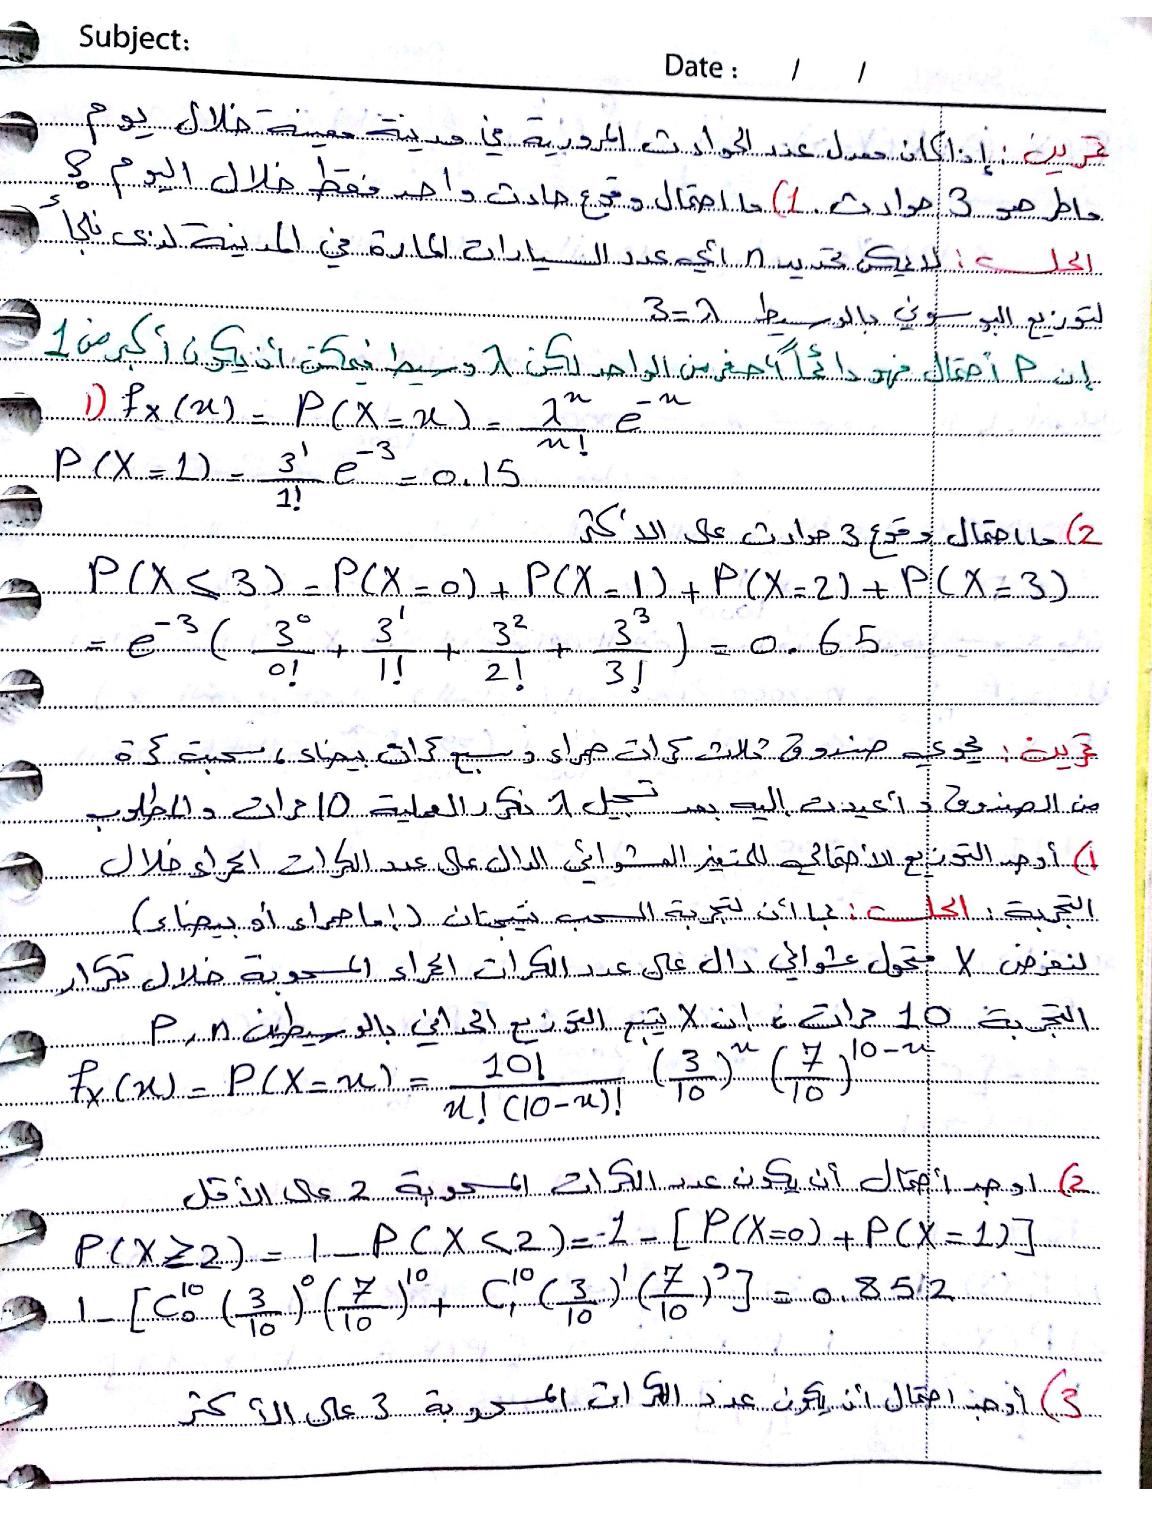 Subject:
Date : / /
تمرين : إذا كان معدل عدد الحوادث المرورية في مدينة معينة خلال يوم
ماطر هو 3 حوادث . 1) ما احتمال وقوع حادث واحد فقط خلال اليوم ؟
الحل : لا يمكن تحديد n أي عدد السيارات المارة في المدينة لذى نلجأ
لتوزيع البوسوني بالوسيط λ=3
إن P احتمال فهو دائماً أصغر من الواحد لكن λ وسيط فيمكن أن يكون أكبر من 1
1) fx(x) = P(X=x) = λ^x / x! e^-x
P(X=1) = 3^1 / 1! e^-3 = 0.15
2) ما احتمال وقوع 3 حوادث على الأكثر
P(X≤3) = P(X=0) + P(X=1) + P(X=2) + P(X=3)
= e^-3 ( 3^0 / 0! + 3^1 / 1! + 3^2 / 2! + 3^3 / 3! ) = 0.65
تمرين : يحوي صندوق ثلاث كرات حمراء و سبع كرات بيضاء ، سحبة كرة
من الصندوق و أعيدت إليه بعد تسجيل نكرر العملية 10 مرات والمطلوب
1) أوجد التوزيع الاحتمالي للمتغير العشوائي الدال على عدد الكرات الحمراء خلال
التجربة : الحل : بما أن لتجربة السحب نتيجتان (إما حمراء أو بيضاء)
لنفرض X متحول عشوائي دال على عدد الكرات الحمراء المسحوبة خلال تكرار
التجربة 10 مرات ، إن X يتبع التوزيع الحداني بالوسيطين P , n
fx(x) = P(X=x) = 10! / x! (10-x)! (3/10)^x (7/10)^10-x
2) اوجد احتمال أن يكون عدد الكرات المسحوبة 2 على الأقل
P(X≥2) = 1 - P(X<2) = 1 - [P(X=0) + P(X=1)]
1 - [C_0^10 (3/10)^0 (7/10)^10 + C_1^10 (3/10)^1 (7/10)^9] = 0.852
3) أوجد احتمال أن يكون عدد الكرات المسحوبة 3 على الأكثر